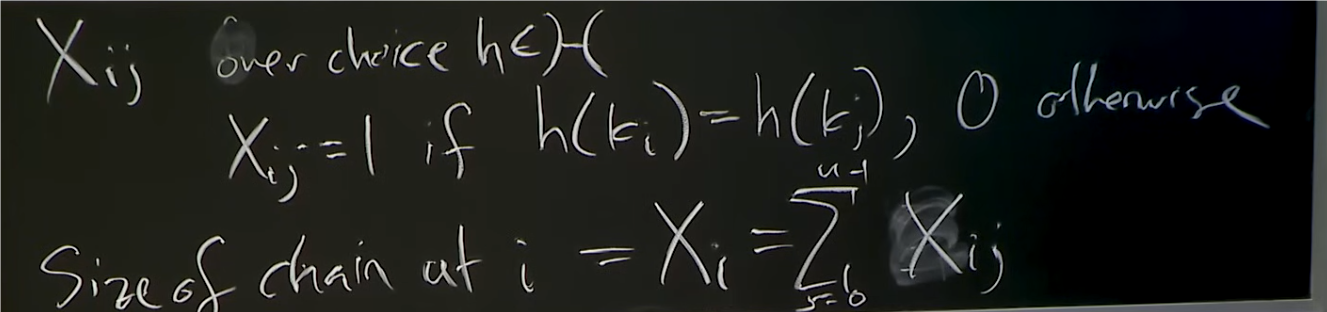 X_{ij} over choice h ∈ H
X_{ij} = 1 if h(k_i) = h(k_j), 0 otherwise
Size of chain at i = X_i = \sum_{j=0}^{u-1} X_{ij}